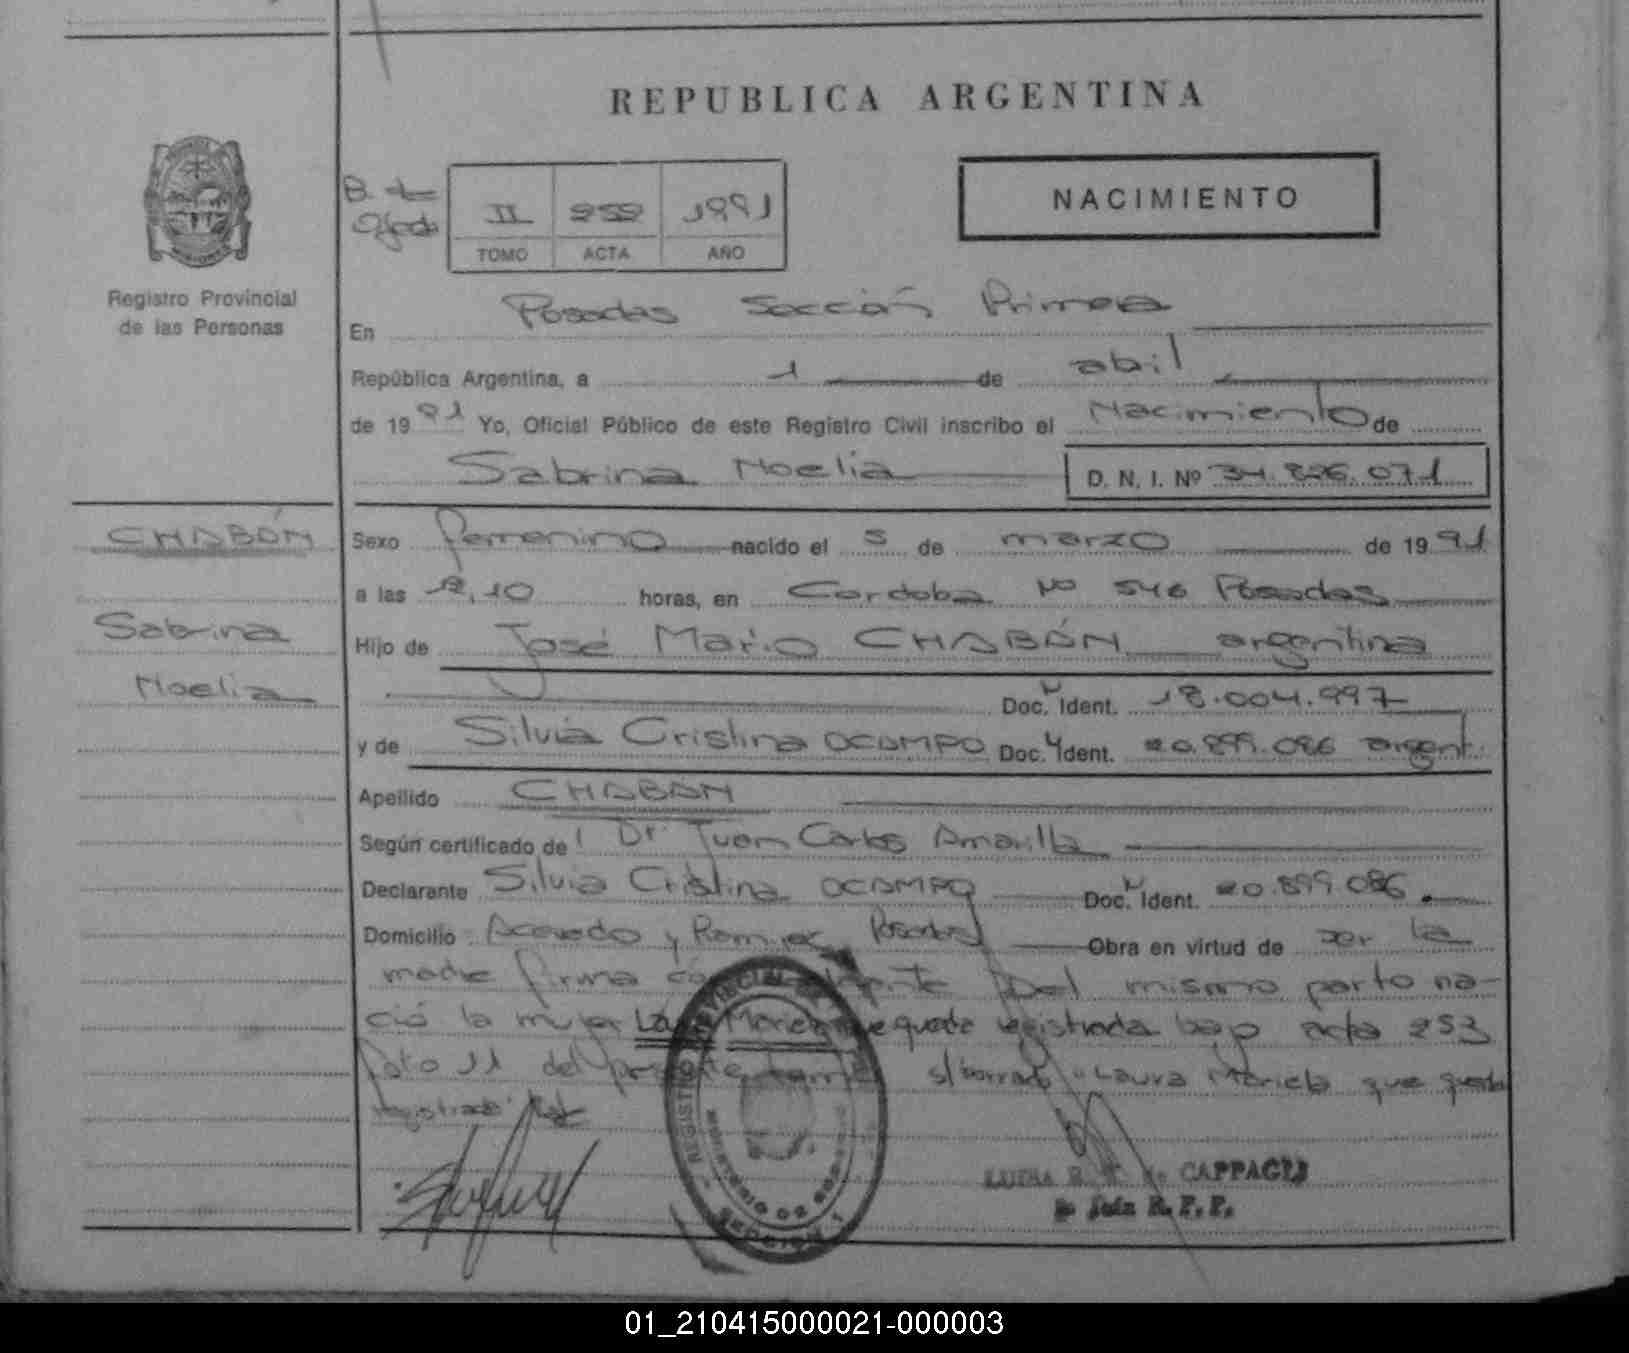 REPUBLICA ARGENTINA
NACIMIENTO
B. de
II 252 1991
TOMO ACTA AÑO
Registro Provincial
de las Personas
En Posadas Sección Primera
República Argentina, a 1 de abril
de 1991 Yo, Oficial Público de este Registro Civil inscribo el Nacimiento de
Sabrina Noelia D. N. I. Nº 34.826.071
CHABÓN
Sabrina
Noelia
Sexo femenino nacido el 5 de marzo de 1991
a las 12,10 horas, en Cordoba Nº 546 Posadas
Hijo de José Mario CHABÓN argentina
Doc. Ident. 18.004.997
y de Silvia Cristina OCAMPO Doc. Ident. 20.899.086 argent.
Apellido CHABÓN
Según certificado de Dr. Juan Carlos Amarilla
Declarante Silvia Cristina OCAMPO Doc. Ident. 20.899.086
Domicilio Acevedo y Ramirez Posadas Obra en virtud de ser la
madre firma Del mismo parto na-
ció la mujer Laura Mariela que queda registrada bajo acta 253
folio 11 del presente tomo s/borrado "Laura Mariela que queda
registrada"
REGISTRO PROVINCIAL DE
SECCION 1
CAPPAGLI
R.P.P.
01_210415000021-000003